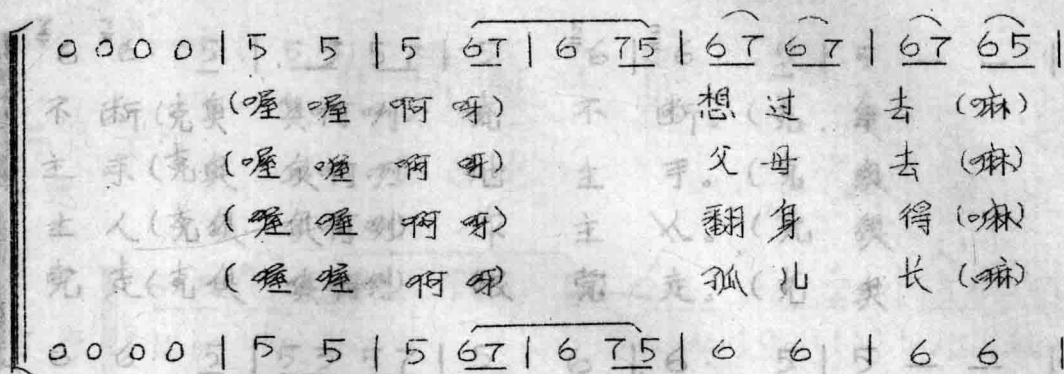 0 0 0 0 | 5 5 | 5 67 | 6 75 | 67 67 | 67 65 |
(喔 喔 啊 呀) 想 过 去 (嘛)
(喔 喔 啊 呀) 父 母 去 (嘛)
(喔 喔 啊 呀) 翻 身 得 (嘛)
(喔 喔 啊 呀) 孤 儿 长 (嘛)
0 0 0 0 | 5 5 | 5 67 | 6 75 | 6 6 | 6 6 |